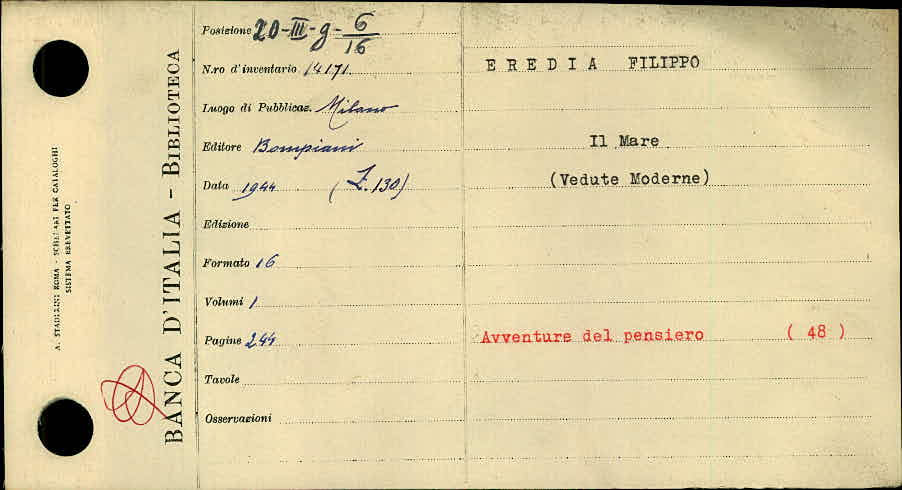 A. STADERINI ROMA - SCHEDARI PER CATALOGHI
SISTEMA BREVETTATO
BANCA D'ITALIA - BIBLIOTECA
Posizione 20-III-g-6/16
N.ro d'inventario 14171
Luogo di Pubblicaz. Milano
Editore Bompiani
Data 1944 (£.130)
Edizione
Formato 16
Volumi 1
Pagine 244
Tavole
Osservazioni
EREDIA FILIPPO
Il Mare
(Vedute Moderne)
Avventure del pensiero (48)